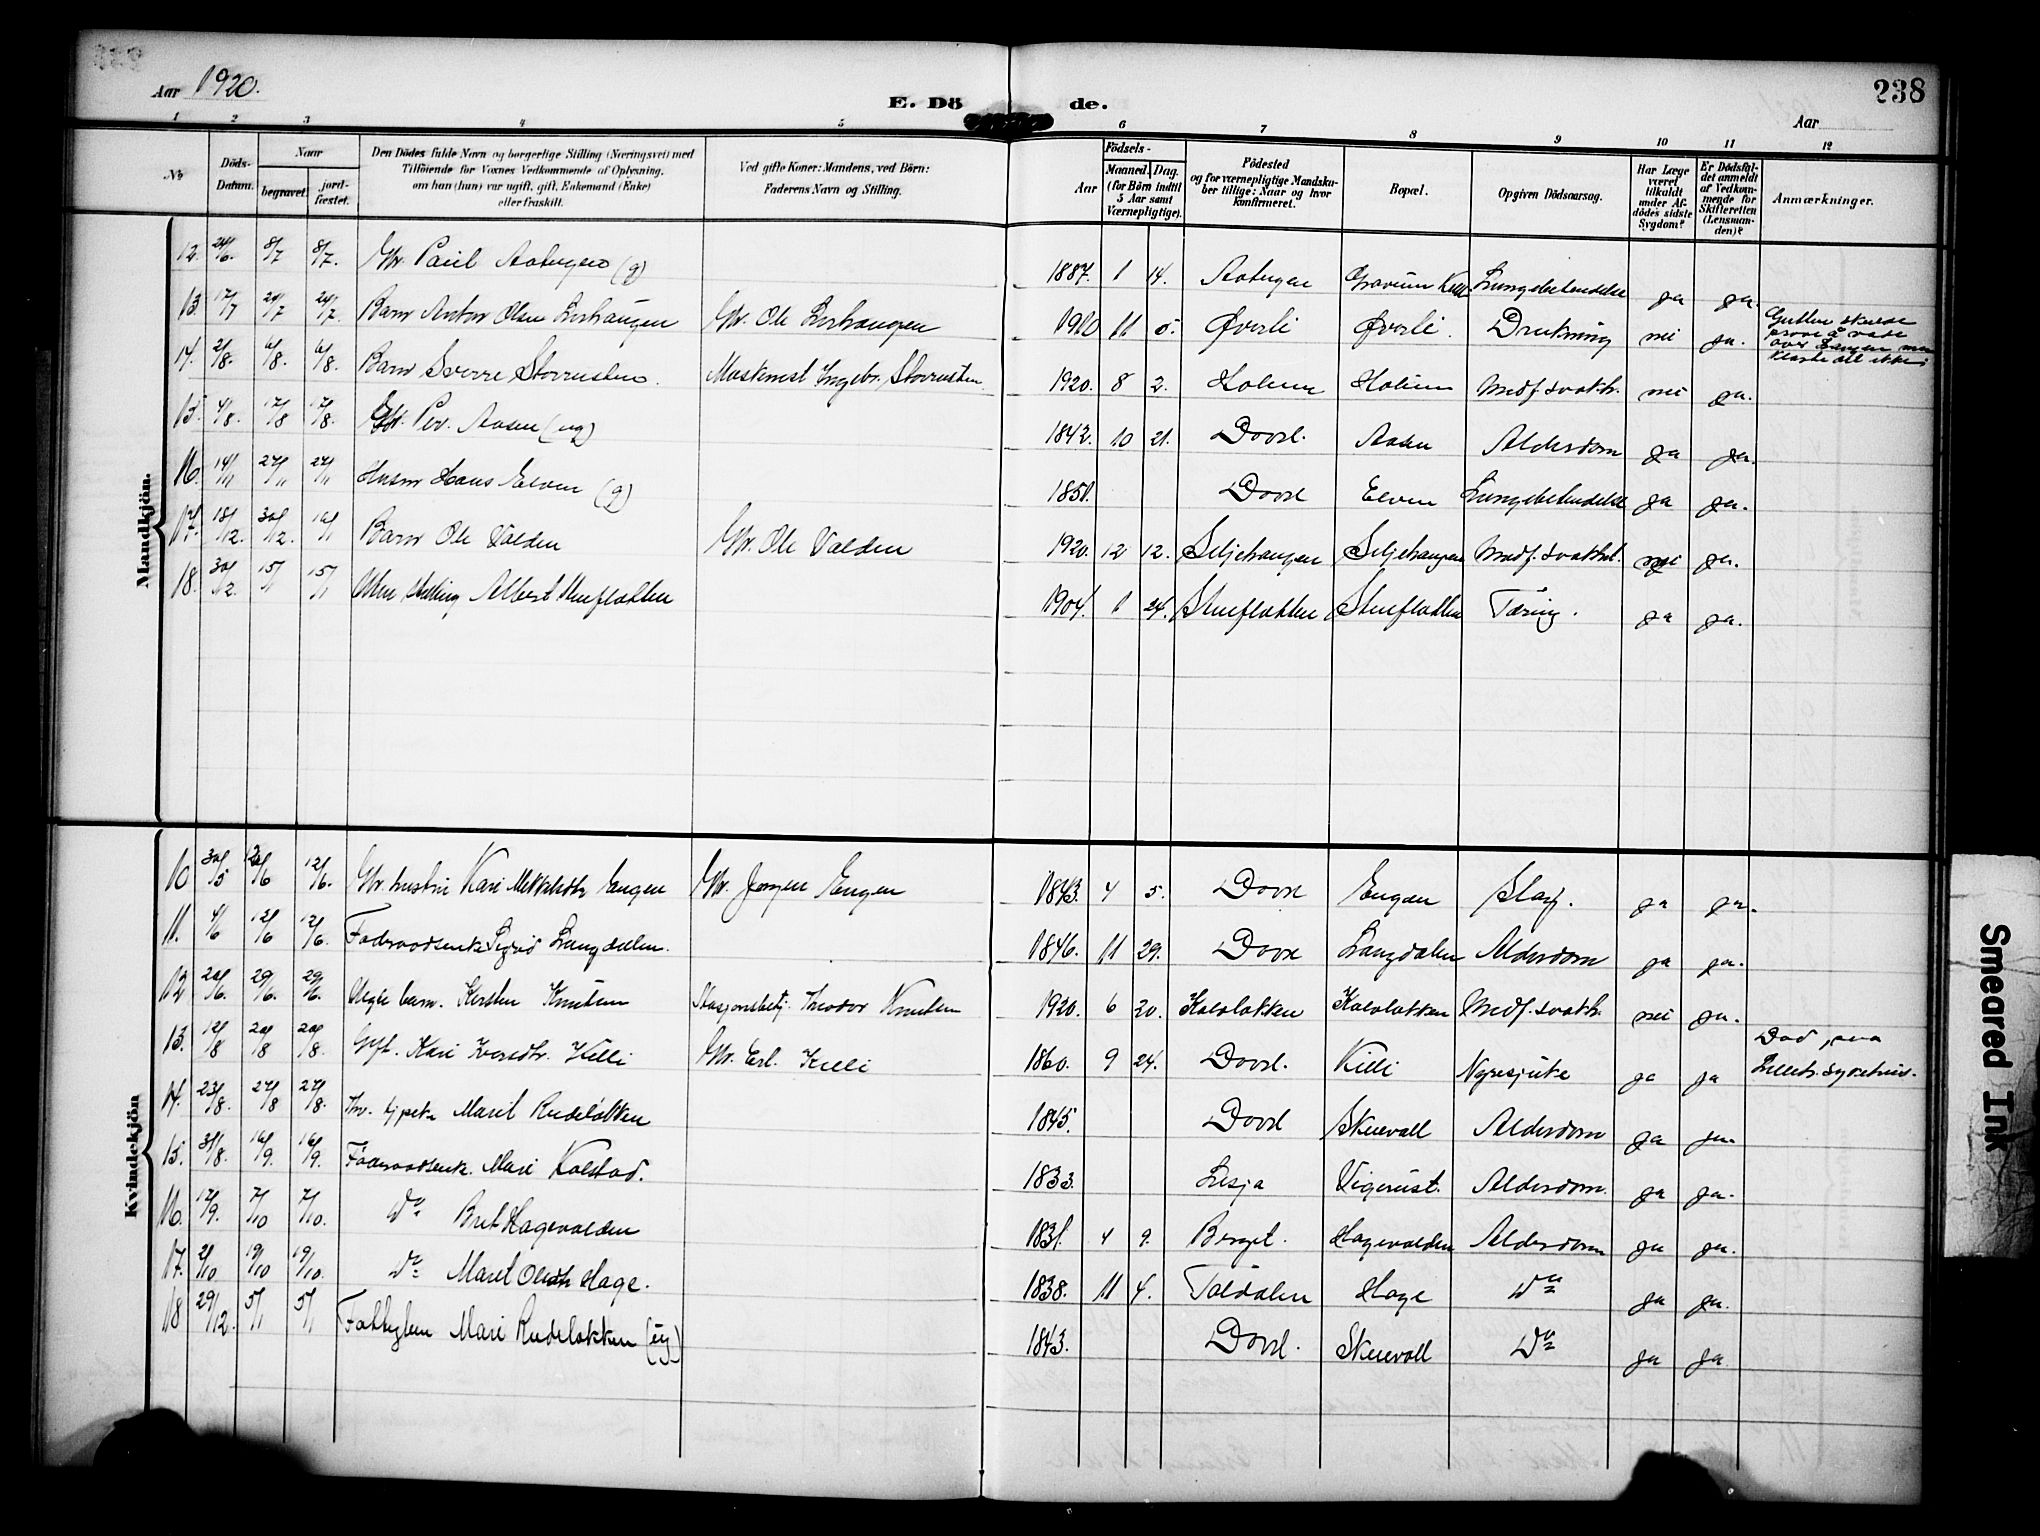 Aar 1920.
E. Döde.
238
Aar
1 2 3 4 5 6 7 8 9 10 11 12
No
Döds-Datum.
Naar
begravet.
jordfæstet.
Den Dödes fulde Navn og borgerlige Stilling (Næringsvei) med
Tilföiende for Voxnes Vedkommende af Oplysning,
om han (hun) var ugift, gift, Enkemand (Enke)
eller fraskilt.
Ved gifte Koner: Mandens, ved Börn:
Faderens Navn og Stilling.
Födsels-
Aar
Maaned. Dag.
(for Börn indtil
5 Aar samt
Værnepligtige).
Födested
og for værnepligtige Mandsku-
ber tillige: Naar og hvor
konfirmeret.
Bopæl.
Opgiven Dödsaarsag.
Har Læge
været
tilkaldt
under Af-
dödes sidste
Sygdom?
Er Dödsfal-
det anmeldt
af Vedkom-
mende for
Skifteretten
(Lensman-
den)?
Anmærkninger.
Mandkjön.
12. 24/6. 8/7 8/7. Gbr. Paul (g) 1887. 1 14. Lungebetendelse ja ja.
13. 17/7 24/7 24/7. Barn Anton Olsen Gbr. Ole 1910 11 5. Øverli Øverli. Drukning nei ja.
14. 2/8. 6/8. 6/8. Barn Sverre Storrusten. Ingebr. Storrusten 1920. 8 2. Medf. svakh. nei ja.
15. 4/8. 17/8 17/8. Per. Aasen (ug) 1842. 10 21. Dovre. Aasen Alderdom ja ja.
16. 14/11 27/11 27/11 Husm Hans Elven (g) 1851. Dovre Elven Lungebetendelse ja ja.
17. 18/12. 30/12. 16/1 Barn Ole Valden Gbr. Ole Valden 1920. 12 12. Seljehaugen Seljehaugen Medf. svakhet. nei ja.
18. 30/12. 15/1 15/1 Albert Stueflotten 1904. 1 24. Stueflotten Stueflotten Tæring. ja ja.
Kvindekjön
10 30/5 12/6 12/6. Gbr. hustru Kari Engen Gbr. Jørgen Engen 1843. 4 5. Dovre Engen Slag. ja ja.
11. 4/6 12/6 12/6. Føderaadsenke Sigrid Langdalen. 1846. 11 29. Dovre Langdalen Alderdom ja ja.
12 20/6. 29/6. 29/6. barn. Kirsten Knutsen Stasjonsbetj. Theodor Knutsen 1920. 6 20. Medf. svakh. nei ja.
13. 12/8 20/8 20/8. Gift. Kari Killi Gbr. Erl. Killi 1860. 9 24. Dovre. Killi Nyresjuke ja ja Død paa Lilleh. sykehus.
14. 23/8. 27/8 27/8. Marit Rudeløkken 1845. Dovre Skeievoll Alderdom ja ja.
15. 31/8. 16/9. 16/9. Føderaadsenk. Mari Kolstad. 1833. Lesja Vigerust. Alderdom. ja ja.
16. 17/9. 7/10 7/10. Do Brit Hagevolden 1831. 4 9. Berget. Hagevolden Alderdom ja ja.
17. 2/10 19/10 19/10. Do Marit Olsdtr Hage. 1838. 11 4. Hage Do ja ja.
18 29/12. 5/1 5/1 Mari Rudeløkken (ug) 1843. Dovre. Skeievoll Do ja ja
Smeared Ink